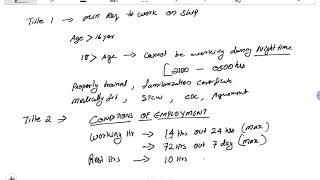 Title 1 → min Req to work on ship
Age > 16 year
18 > Age → Cannot be working during Night time
[2100 - 0500 hrs
Properly trained, familiarization certificate
medically fit, STCW, CDC, Agreement
Title 2 → CONDITIONS OF EMPLOYMENT
Working Hr → 14 Hrs out 24 hrs (max)
→ 72 Hrs out 7 day (max)
Rest Hrs → 10 Hrs